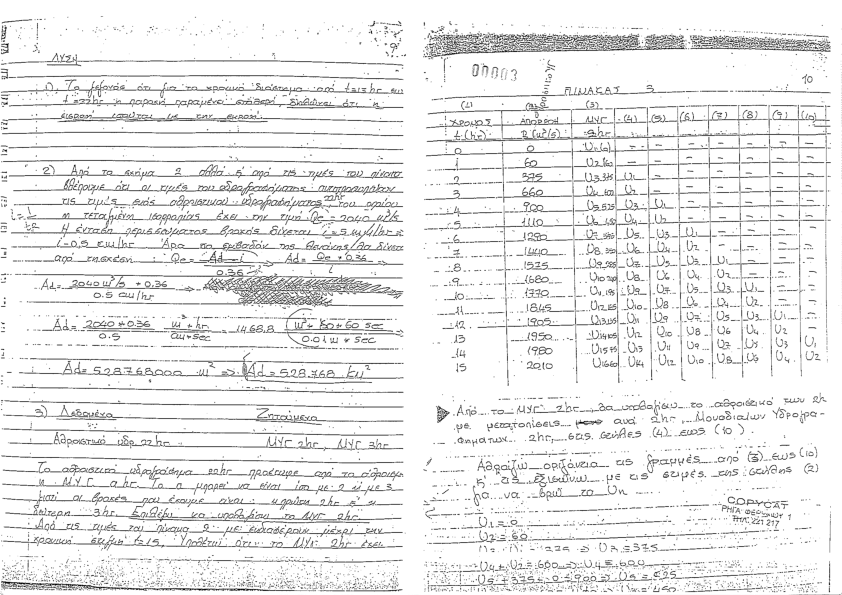 9
ΛΥΣΗ
1) Το γεγονός ότι για το χρονικό διάστημα από t=15hr εως
t=22hr η παροχή παραμένει σταθερή, δηλώνει ότι η
εκροή ισούται με την εισροή.
2) Από το σχήμα 2 αλλά κ' από τις τιμές του πίνακα
βλέπουμε ότι οι τιμές του υδρογραφήματος αντιπροσωπεύουν
τις τιμές ενός αθροιστικού υδρογραφήματος 22hr του οποίου
η τεταγμένη ισορροπίας έχει την τιμή Qe = 2040 m³/s
Η ένταση περισσεύματος βροχής δίνεται i=5 mm/hr =
i=0,5 cm/hr Άρα το εμβαδόν της θα δίνεται
από τη σχέση : Qe = Ad·i / 0.36 => Ad = Qe * 0.36 / i
Ad = 2040 m³/s * 0.36 / 0.5 cm/hr
Ad = 2040*0.36 / 0.5 m³*hr / cm*sec = 1468,8 m³ * 60*60 sec / 0.01m * sec
Ad = 528768000 m² => Ad = 528.768 km²
3) Δεδομένα Ζητούμενα
Αθροιστικό υδρ. 22hr ΜΥΓ 2hr, ΜΥΓ 3hr
Το αθροιστικό υδρογράφημα 22hr προέκυψε από το άθροισμα
ΜΥΓ a hr. Το a μπορεί να είναι ίσο με 2 ή με 3
γιατί οι βροχές που έχουμε είναι: η πρώτη 2hr κ' η
δεύτερη 3hr. Επιλέγω να υπολογίσω το ΜΥΓ 2hr
Από τις τιμές του πίνακα 2 με ενδιαφέρουν μέχρι την
χρονική στιγμή t=15. Υποθέτω ότι το ΜΥΓ 2hr έχει
00003
10
ΠΙΝΑΚΑΣ 3
(1) (2) (3)
ΧΡΟΝΟΣ ΑΠΟΡΡΟΗ ΜΥΓ (4) (5) (6) (7) (8) (9) (10)
t (hr) Q (m³/s) 2hr
0 0 U1(0) - - - - - - -
1 60 U2 (60) - - - - - - -
2 375 U3 375 U1 - - - - - -
3 660 U4 600 U2 - - - - - -
4 900 U5 525 U3 U1 - - - - -
5 1110 U6 450 U4 U2 - - - - -
6 1290 U7 U5 U3 U1 - - - -
7 1440 U8 U6 U4 U2 - - - -
8 1575 U9 285 U7 U5 U3 U1 - - -
9 1680 U10 240 U8 U6 U4 U2 - - -
10 1770 U11 195 U9 U7 U5 U3 U1 - -
11 1845 U12 165 U10 U8 U6 U4 U2 - -
12 1905 U13 U11 U9 U7 U5 U3 U1 -
13 1950 U14 105 U12 U10 U8 U6 U4 U2 -
14 1980 U15 75 U13 U11 U9 U7 U5 U3 U1
15 2010 U16 60 U14 U12 U10 U8 U6 U4 U2
Από το ΜΥΓ 2hr, θα υπολογίσω το αθροιστικό των 2h
με μετατοπίσεις ανά 2hr, Μοναδιαίων Υδρογρα-
φημάτων 2hr, στις στήλες (4) εως (10).
Αθροίζω οριζόντια τις γραμμές από (3) εως (10)
κ' τις εξισώνω με τις τιμές της στήλης (2)
για να βρω το Un
COPYCAT
U1 = 0
U2 = 60
=> U3 = 375
U4 + U2 = 660 => U4 = 600
U5 + 375 + 0 = 900 => U5 = 525